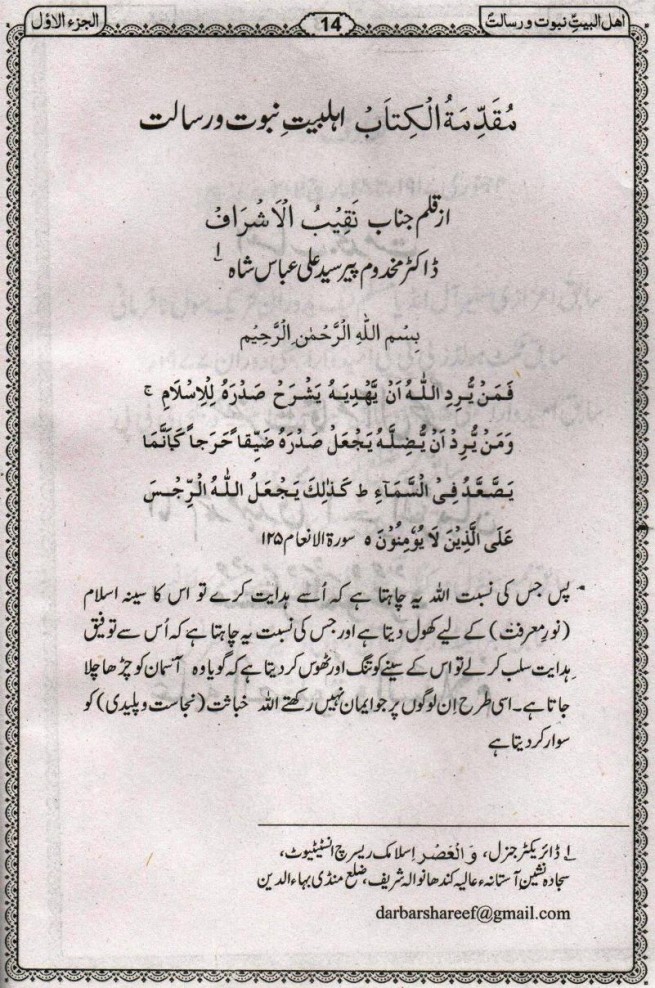 اهل البیتِ نبوت و رسالتؐ
14
الجزء الاوّل
مُقَدِّمَةُ الْكِتَابْ اہلبیتِ نبوت ورسالت
از قلم جناب نَقِیْبُ الْاَشْرَافْ
ڈاکٹر مخدوم پیر سید علی عباس شاہ ۱؎
بِسْمِ اللهِ الرَّحْمٰنِ الرَّحِیْمِ
فَمَنْ یُّرِدِ اللّٰهُ اَنْ یَّهْدِیَهٗ یَشْرَحْ صَدْرَهٗ لِلْاِسْلَامِ ج
وَمَنْ یُّرِدْ اَنْ یُّضِلَّهٗ یَجْعَلْ صَدْرَهٗ ضَیِّقاً حَرَجاً كَاَنَّمَا
یَصَّعَّدُ فِی السَّمَآءِ ط كَذٰلِكَ یَجْعَلُ اللّٰهُ الرِّجْسَ
عَلَی الَّذِیْنَ لَا یُؤمِنُوْنَ ه سورة الانعام ۱۲۵
پس جس کی نسبت اللہ یہ چاہتا ہے کہ اُسے ہدایت کرے تو اس کا سینہ اسلام
(نورِ معرفت) کے لیے کھول دیتا ہے اور جس کی نسبت یہ چاہتا ہے کہ اُس سے توفیقِ
ہدایت سلب کر لے تو اس کے سینے کو تنگ اور ٹھوس کر دیتا ہے کہ گویا وہ آسمان کو چڑھا چلا
جاتا ہے۔ اسی طرح اِن لوگوں پر جو ایمان نہیں رکھتے اللہ خباثت (نجاست و پلیدی) کو
سوار کر دیتا ہے
۱؎ ڈائریکٹر جنرل، وَالْعَصْر اسلامک ریسرچ انسٹیٹیوٹ،
سجادہ نشینِ آستانہء عالیہ کندھانوالہ شریف، ضلع منڈی بہاءالدین
darbarshareef@gmail.com